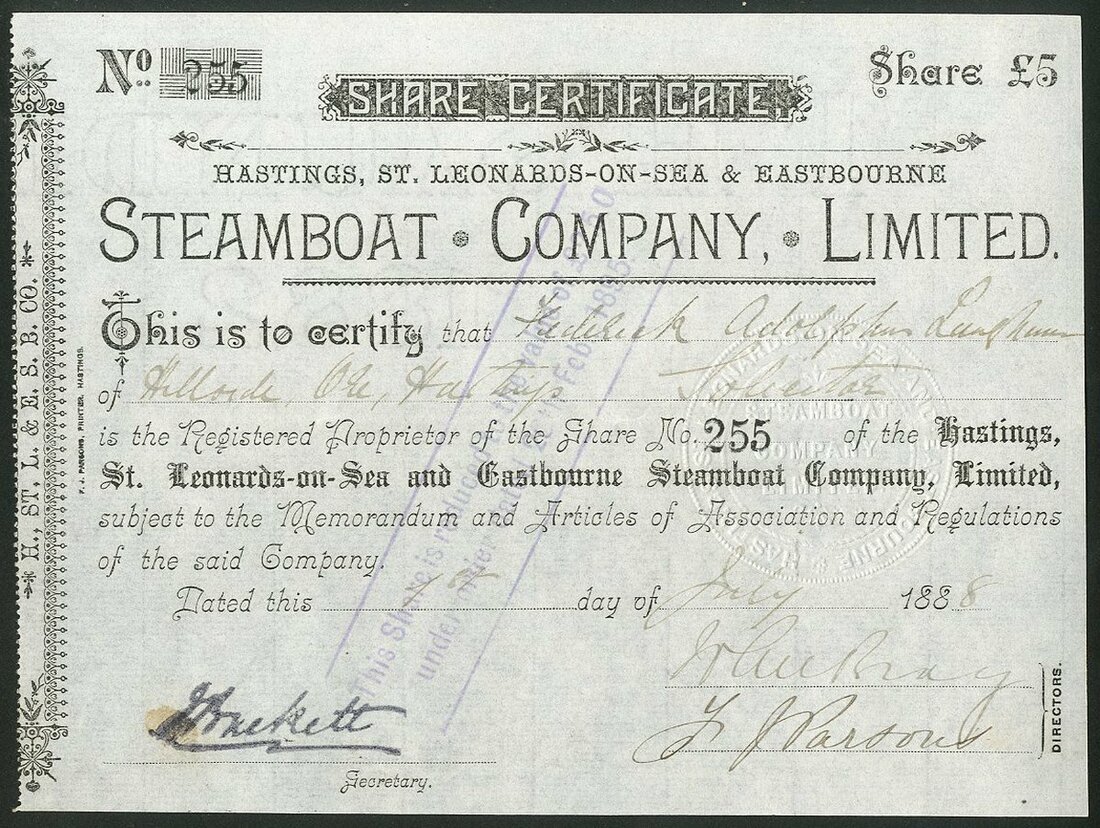 No. 255
Share £5
SHARE CERTIFICATE
HASTINGS, ST. LEONARDS-ON-SEA & EASTBOURNE
STEAMBOAT COMPANY, LIMITED.
This is to certify that Frederick Adolphus Langham
of Hillside, Ore, Hastings Solicitor
is the Registered Proprietor of the Share No. 255 of the Hastings,
St. Leonards-on-Sea and Eastbourne Steamboat Company, Limited,
subject to the Memorandum and Articles of Association and Regulations
of the said Company.
Dated this day of July 1888
F J Parsons
DIRECTORS.
Secretary.
H., ST. L. & E. S. B. CO.
F. J. PARSONS, PRINTER, HASTINGS.
This Share is reduced to the value of
under order dated Feb 1895
STEAMBOAT
COMPANY
LIMITED